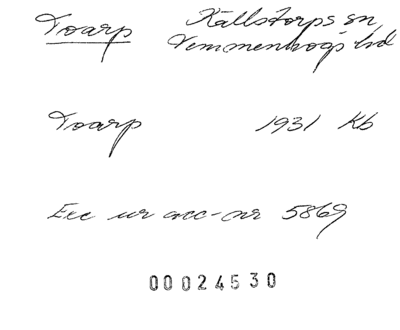 Toarp Källstorps sn
Vemmenhögs hd
Toarp 1931 Kb
Exc ur acc-nr 5869
00024530